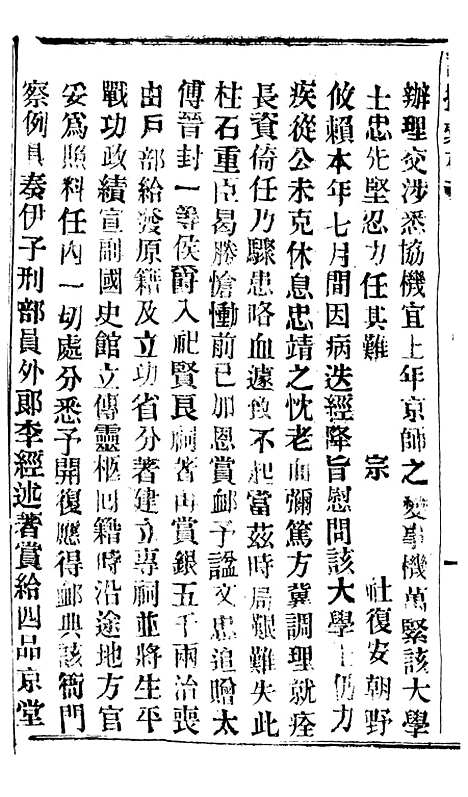 辦理交涉悉協機宜上年京師之變事機萬緊該大學
士忠先堅忍力任其難 宗 社復安朝野
攸賴本年七月間因病迭經降旨慰問該大學士仍力
疾從公未克休息忠靖之忱老而彌篤方冀調理就痊
長資倚任乃驟患咯血遽致不起當茲時局艱難失此
柱石重臣曷勝愴慟前已加恩賞卹予諡文忠追贈太
傅晉封一等侯爵入祀賢良祠著再賞銀五千兩治喪
由戶部給發原籍及立功省分著建立專祠並將生平
戰功政績宣副國史館立傳靈柩回籍時沿途地方官
妥爲照料任內一切處分悉予開復應得卹典該衙門
察例具奏伊子刑部員外郎李經述著賞給四品京堂